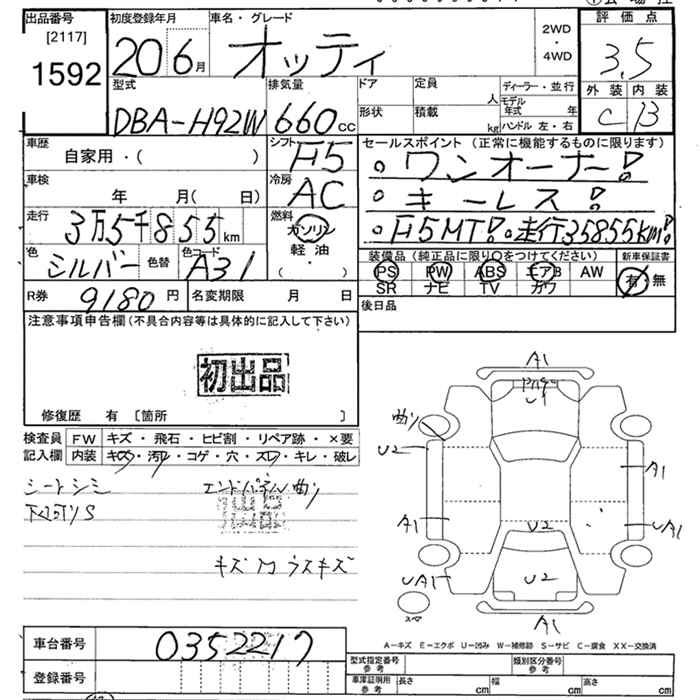 出品番号
[2117]
1592
初度登録年月
20 6月
車名・グレード
オッティ
2WD
・
4WD
評価点
3.5
外装 内装
C B
型式
DBA-H92W
排気量
660cc
ドア
形状
定員
人
積載
kg
ディーラー・並行
モデル年式 年
ハンドル 左・右
車歴
自家用・( )
シフト
F5
車検
年 月( 日)
冷房
AC
走行
3万5千855km
燃料
ガソリン
軽油
・( )
色
シルバー
色替
色コード
A31
R券
9180円
名変期限 月 日
セールスポイント (正常に機能するものに限ります)
・ワンオーナー!
・キーレス!
・F5MT!・走行35855km!
装備品(純正品に限り○をつけてください)
PS PW ABS エアB AW
SR ナビ TV カワ
新車保証書
有・無
後日品
注意事項申告欄(不具合内容等は具体的に記入して下さい)
初出品
修復歴 有 〔箇所 〕
検査員記入欄
FW キズ・飛石・ヒビ割・リペア跡・×要
内装 キズ・汚レ・コゲ・穴・スレ・キレ・破レ
シートシミ
エンドパネル曲り
キズM ラスキズ
A1
U1
曲り
U2
A1
A1
U2
UA1
UA1
U2
スペア
A1
A-キズ E-エクボ U-凹み W-補修跡 S-サビ C-腐食 XX-交換済
車台番号
0352217
登録番号
型式指定番号
参考
類別区分番号
参考
車庫証明用
参考
長さ cm
幅 cm
高さ cm